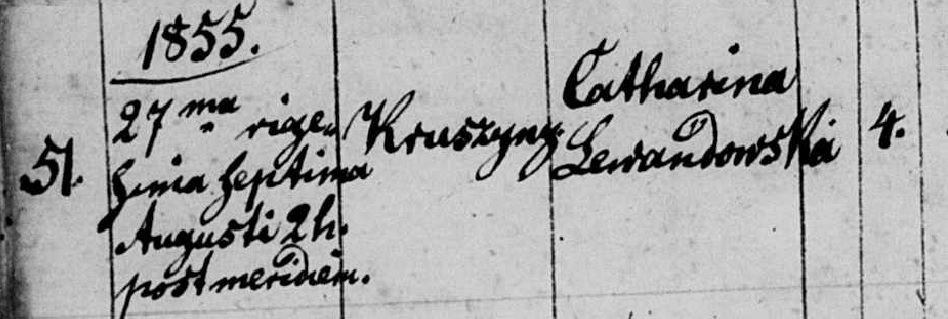 1855.
27 ma vige-
51. sima septima
Augusti 2h.
post meridiem.
Kruszyny.
Catharina
Lewandowska
4.